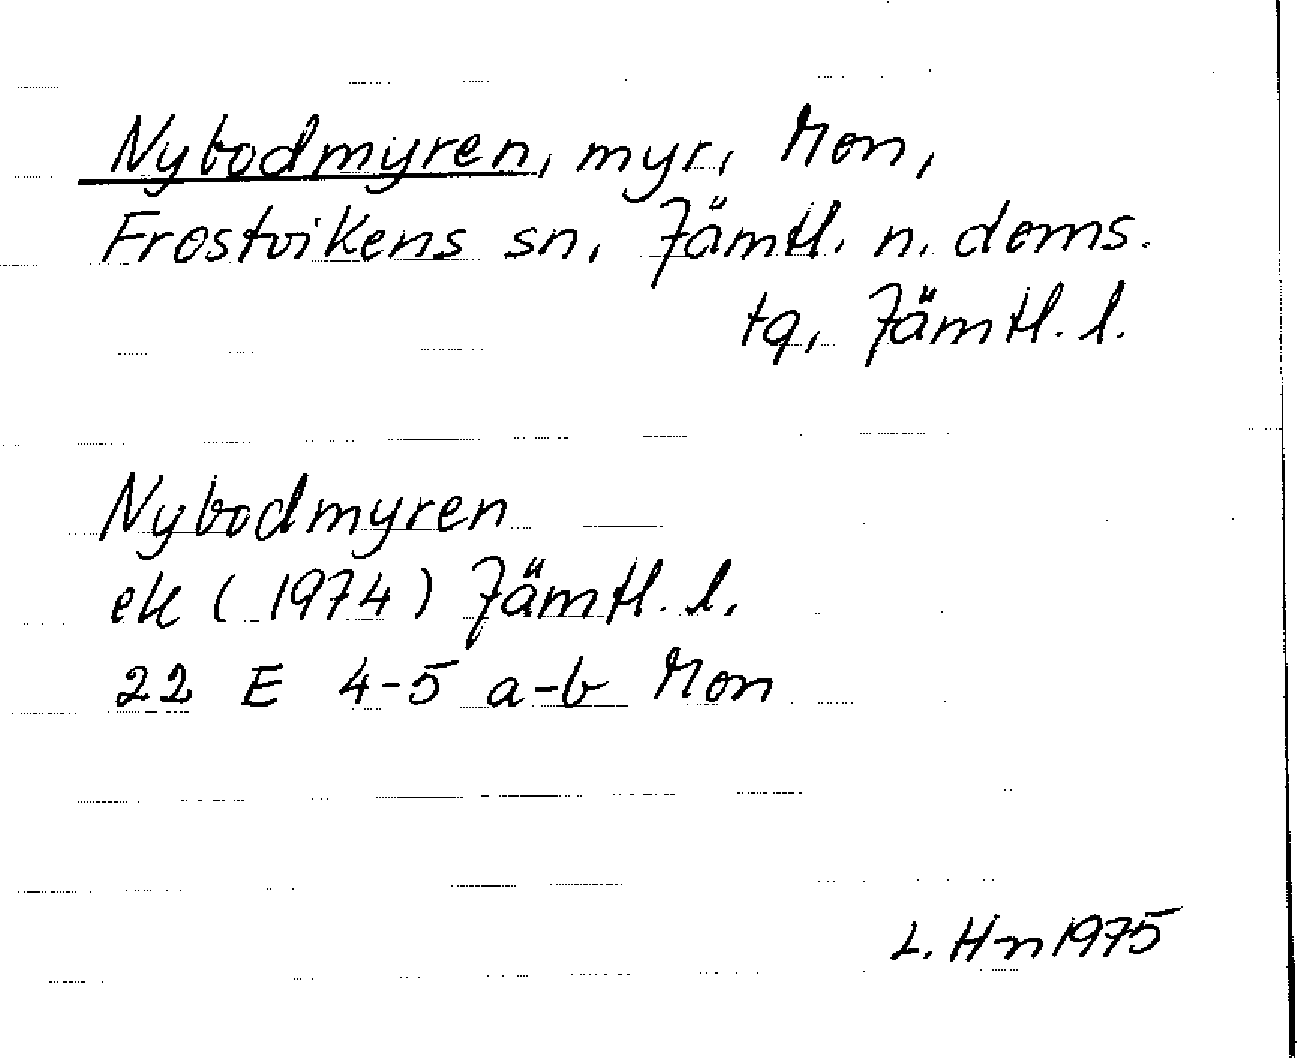 Nybodmyren, myr, Mon,
Frostvikens sn, Jämtl. n. doms.
tq, Jämtl. l.
Nybodmyren
ek (1974) Jämtl. l.
22 E 4-5 a-b Mon
L. Hn 1975